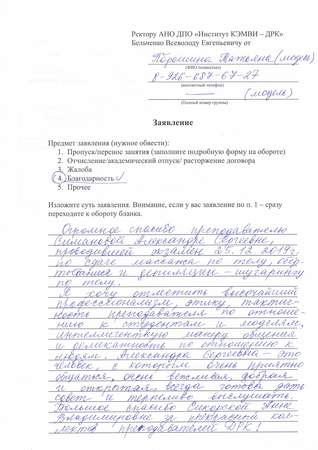 Ректору АНО ДПО «Институт КЭМВИ – ДРК»
Бельченко Всеволоду Евгеньевичу от
Порошина Татьяна (модель)
(ФИО полностью)
8-926-687-67-27
(контактный телефон)
(модель)
(Полный номер группы)
Заявление
Предмет заявления (нужное обвести):
1. Пропуск/перенос занятия (заполните подробную форму на обороте)
2. Отчисление/академический отпуск/ расторжение договора
3. Жалоба
4. Благодарность
5. Прочее
Изложите суть заявления. Внимание, если у вас заявление по п. 1 – сразу
переходите к обороту бланка.
Огромное спасибо преподавателю
Александре Сергеевне,
проводившей экзамен 25.12.2019г.
по сдаче массажа по телу, обёр-
тывания и депиляции – шугарингу
по телу.
Я хочу отметить высочайший
профессионализм, этику, тактич-
ность преподавателя по отноше-
нию к студентам и моделям,
интеллигентную манеру общения
и деликатность по отношению к
людям. Александра Сергеевна – это
человек, с которым очень приятно
общаться, очень вежливая, добрая
и открытая, всегда готова дать
совет и терпеливо выслушать.
Большое спасибо Сикорской Анне
Владимировне за прекрасный кол-
лектив преподавателей ДРК!